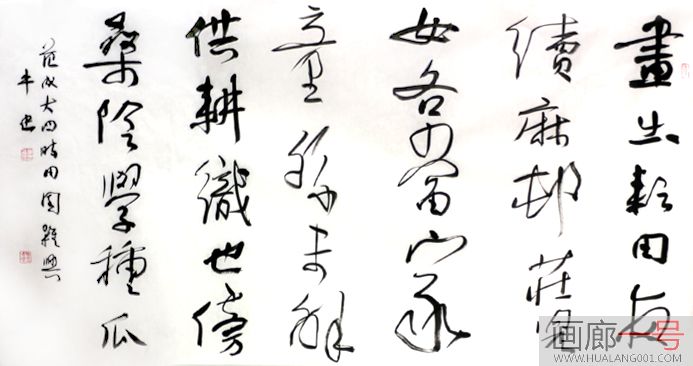 晝出耘田夜
績麻邨莊兒
女各當家
童孫未解
供耕織也傍
桑陰學種瓜
范成大四時田園雜興
画廊一号
WWW.HUALANG001.COM